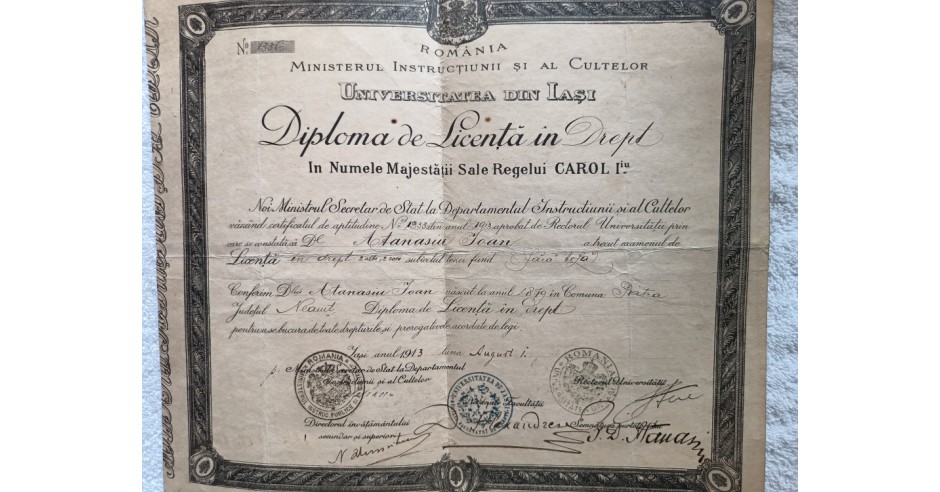 No 1336
ROMÂNIA
MINISTERUL INSTRUCȚIUNII ȘI AL CULTELOR
UNIVERSITATEA DIN IAȘI
Diploma de Licență in Drept
In Numele Majestății Sale Regelui CAROL Iiu
Noi Ministrul Secretar de Stat la Departamentul Instructiunii si al Cultelor
văzând certificatul de aptitudine No din anul 1913 aprobat de Rectorul Universității prin
care se constată că Dl Atanasiu Ioan a trecut examenul de
Licență in drept subiectul tezei fiind fără teză
Conferim Dlui Atanasiu Ioan născut la anul 1890 in Comuna Piatra
Județul Neamț Diploma de Licență in Drept
pentru a se bucura de toate drepturile și prerogativele acordate de legi.
Iași anul 1913 luna August 1.
p. Ministrul Secretar de Stat la Departamentul
Instructiunii si al Cultelor
Rectorul Universității
Decanul Facultății
Directorul învățământului
secundar si superior
Semnătura purtătorului
ROMANIA
UNIVERSITATEA DE IASI
ROMANIA